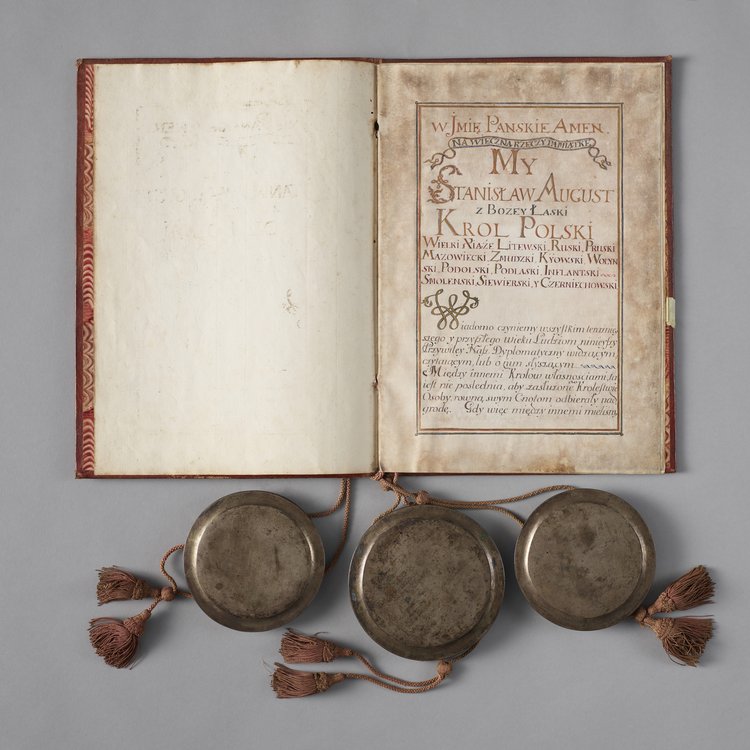 W JMIĘ PANSKIE AMEN.
NA WIECZNA RZECZY PAMIĄTKĘ
MY
STANISŁAW AUGUST
Z BOZEY ŁASKI
KROL POLSKI
WIELKI XIĄZE LITEWSKI, RUSKI, PRUSKI
MAZOWIECKI, ZMUDZKI, KYOWSKI, WOŁYN
SKI, PODOLSKI, PODLASKI, INFLANTSKI
SMOLENSKI, SIEWIERSKI, Y CZERNIECHOWSKI
Wiadomo czyniemy wszystkim teraznię
szego y przyszłego Wieku Ludziom, ninieyszy
Przywiley Nasz Dyplomatyczny widzącym,
czytaiącym, lub o nim słyszącym
Między innemi Krolow własnosciami, ta
iest nie poslednia, aby zasłużone Krolestwu
Osoby, rowną swym Cnotom odbierały nad
grodę. Gdy więc między innemi mieliśmy